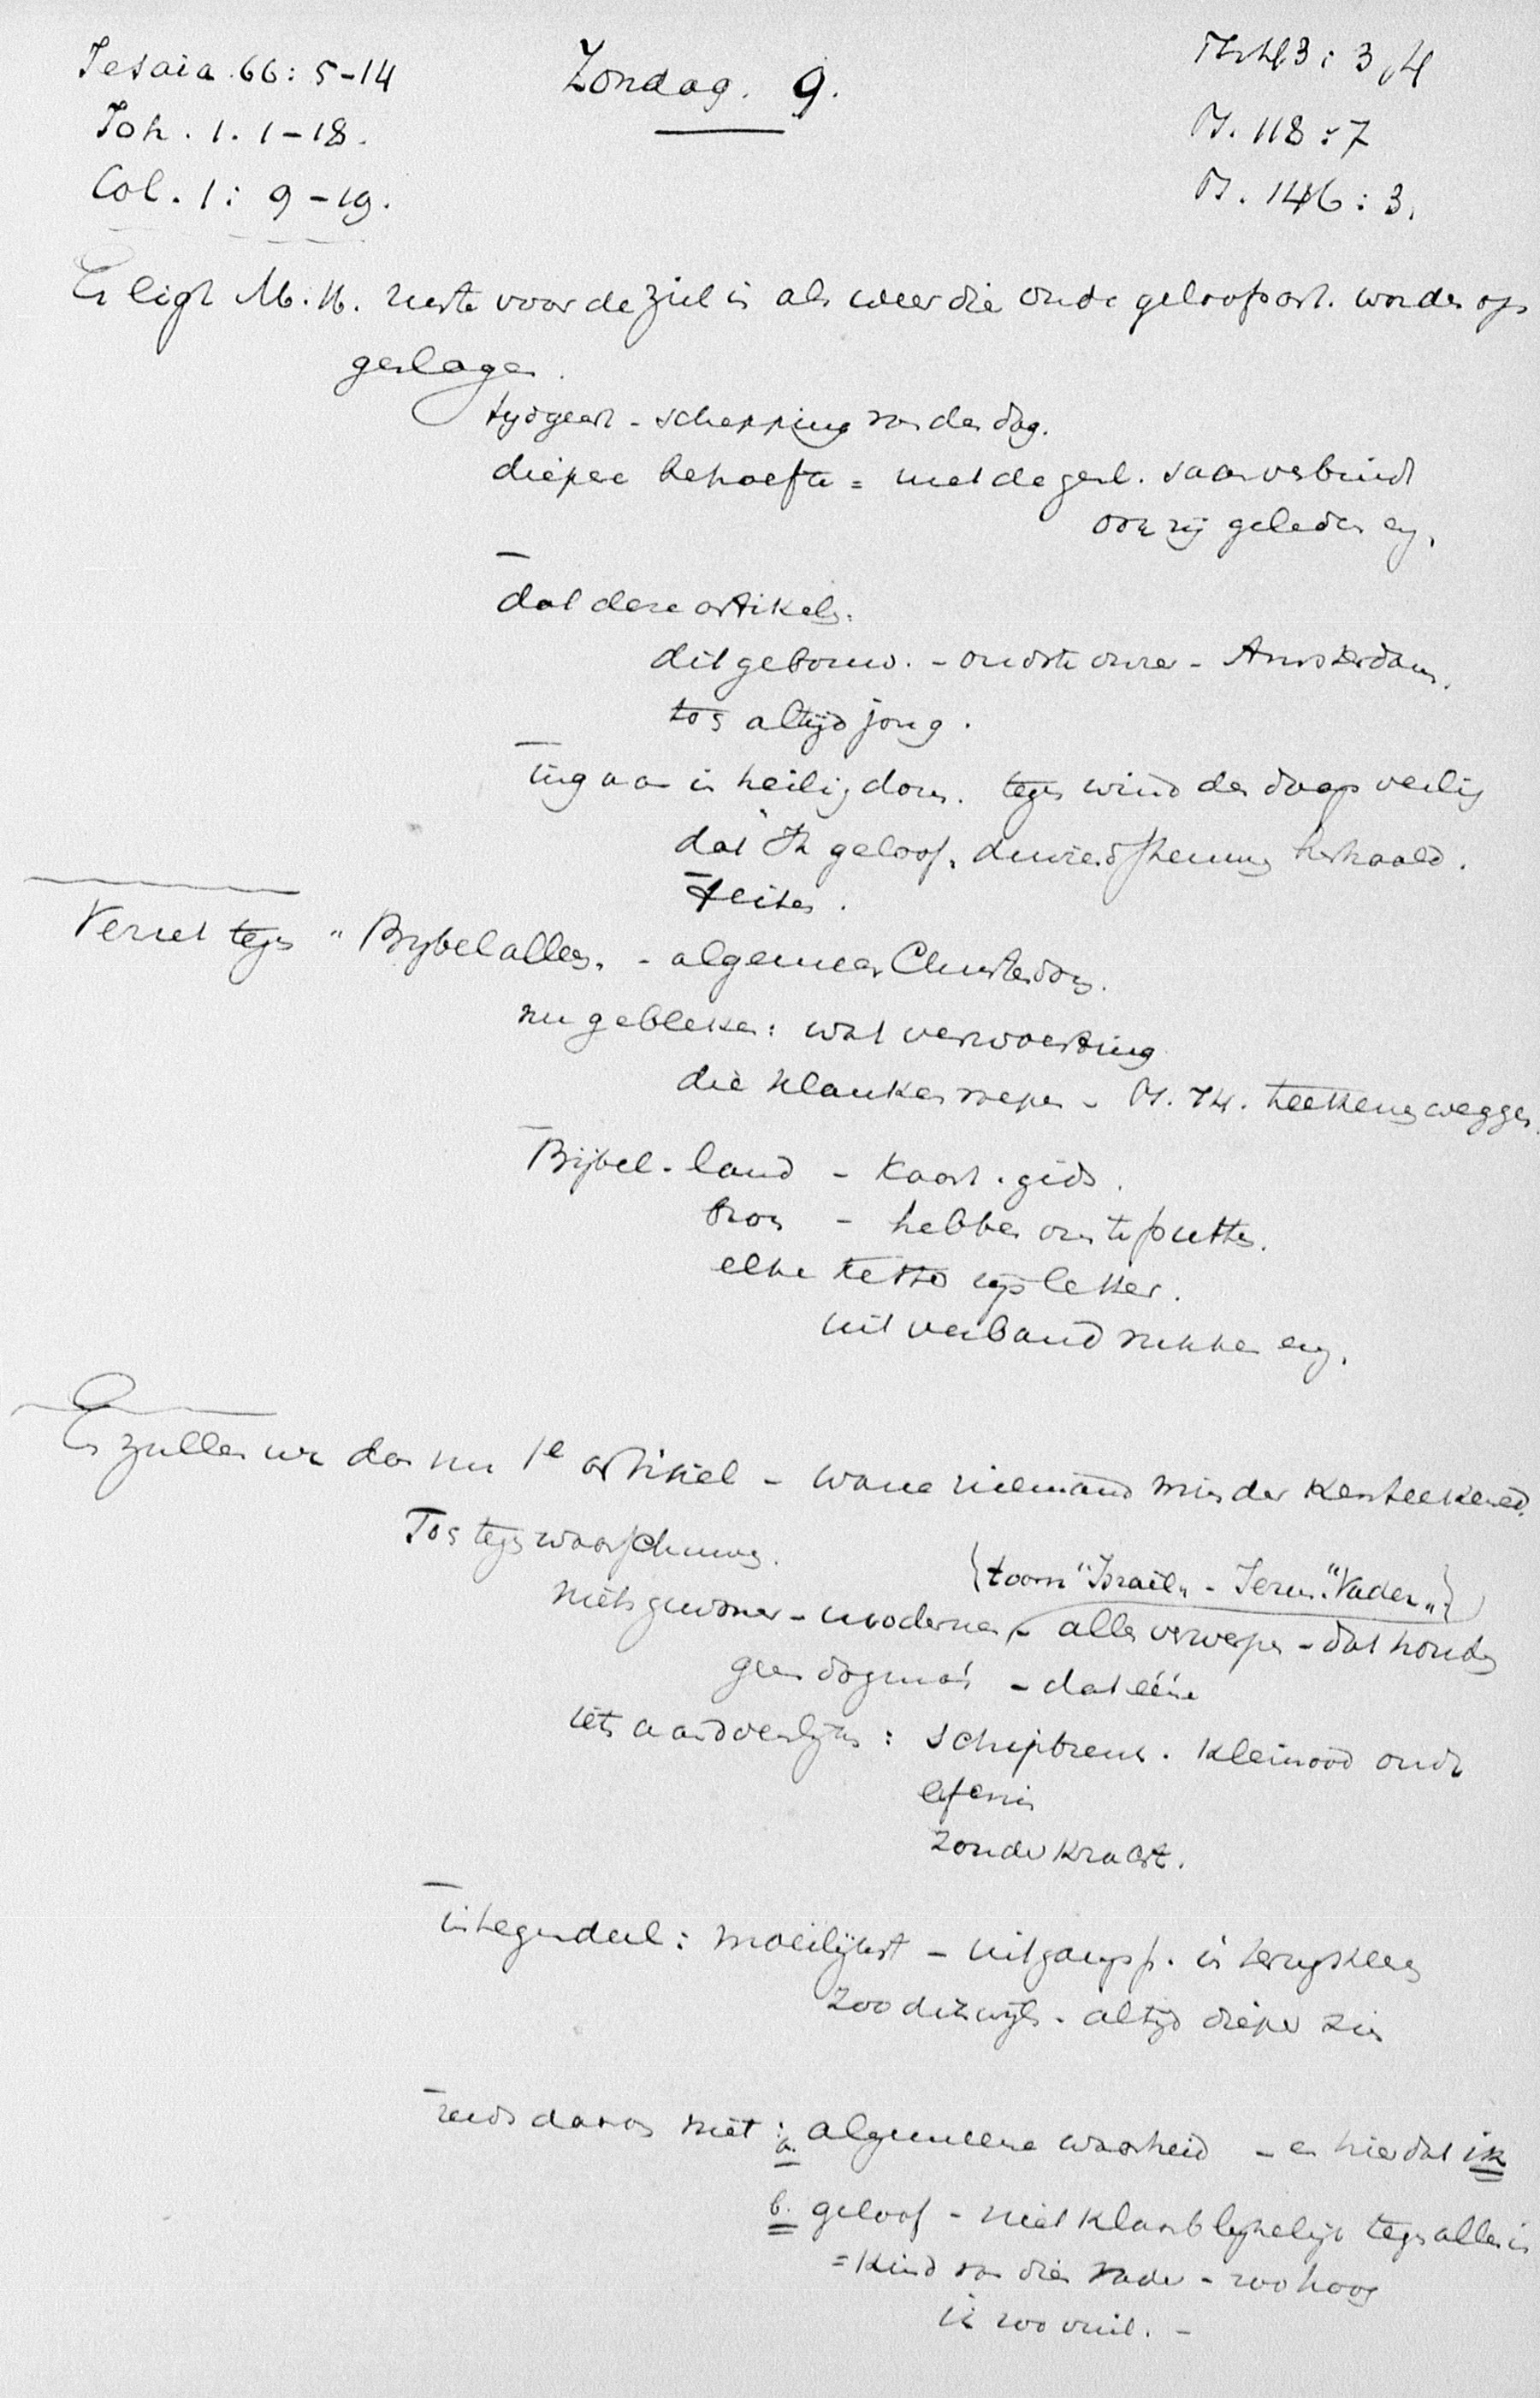 Jesaia. 66: 5-14
Joh. 1. 1-18.
Col. 1: 9-19.
Zondag. 9.
3, 4
Ps. 118:7
Ps. 146:3.
Er ligt M. H. voor de ziel in als weer die oude geloofsart. worden op
geslagen.
tydgeest - schepping van den dag.
diepere behoefte = met de gesl. saamverbindt
eeuwen.
dat deze artikelen.
dit gebouw. - oudste onzer - Amsterdam.
tog altijd jong.
ingaan in heiligdom. tegen wind der dagen veilig
dat "Ik geloof" duizendstemmig herhaald.
Feiten.
Verzet tegen "Bybel alleen" - algemeen Christendom.
nu gebleken: wat verwoesting
die klanken roepen - Ps. 74. teekenen wegge
Bijbel. land - Kaart. gids.
bron - hebben om te putten.
elke ketter zijn letter.
uit verband rukken enz.
En zullen we dan nu 1e artikel - wane niemand minder kenteekenend.
Tog tegen waarschuwing.
{toorn "Israël" - Jerem. "Vader"}
niets gewoner - moderne - alles verwerpen - dat houden
geen dogma's - dat ééne
iets aandoenlijks: schipbreuk. kleinood oude
erfenis
zonder kracht.
integendeel: moeilijkst - uitgangsp. is
zoo dikwijls - altijd dieper zin
reeds daarom niet: a. algemeene waarheid - en hier dat ik
b. geloof - niet klaarblijkelijk tegen alles in
= kind van dien Vader - zoo hoog
ik zoo vuil. -